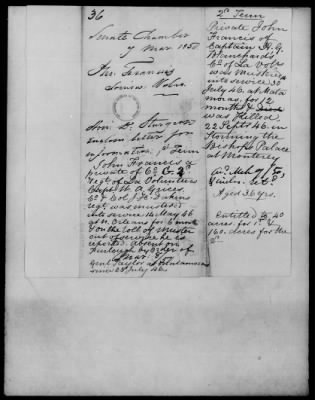 36
Senate Chamber
7 Mar. 1851
Francis
Louisa Vols.
Wm. D. Sturgeon
Encloses letter for
information. 1st Term
John Francis a
private of Co. G. 2d
Regt of La Volunteers
Capt W. A. Grices
Co & Col. J. H. Dakins
regt was mustered
into service 14 May 46
at N. Orleans for 6 months
& on the roll of muster
out of service he is
reported absent on
furlough by order of
Genl Taylor at Matamoras
since 28 July 46.
2d Term
Private John
Francis of
Captain A. G.
Blanchards
Co of La Vols
was mustered
into service 30
July 46. at Mata
moras for 12
months &
was Killed
22 Septr 46. in
storming the
Bishops Palace
at Monterey
Aged 36 yrs.
Entitled to 40
acres for 1st &
160 acres for the
2d